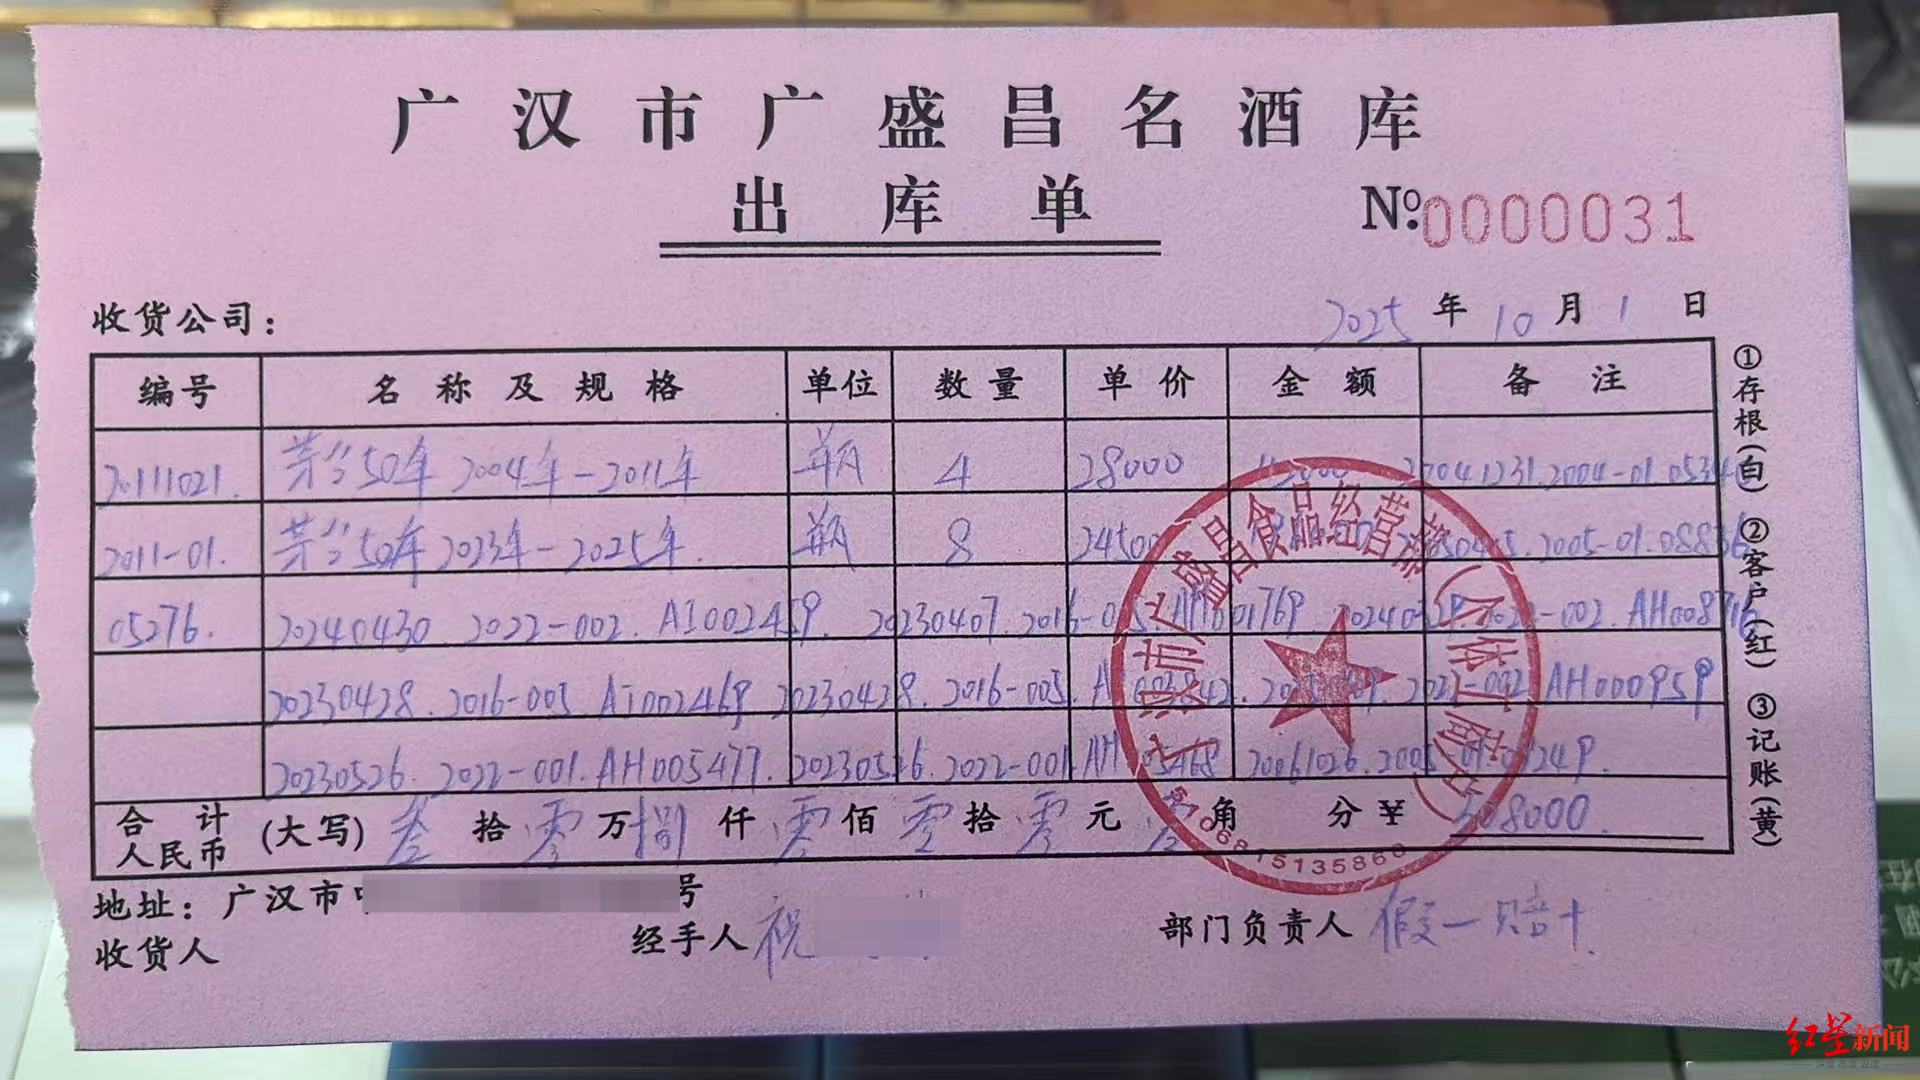 广汉市广盛昌名酒库
出库单
№:0000031
收货公司:
2025年10月1日
编号 名称及规格 单位 数量 单价 金额 备注
20111021. 茅台50年 2004年-2011年 瓶 4 28000 20041231.2004-01.0534
2011-01. 茅台50年 2023年-2025年. 瓶 8 24500 2005-01.08836
05276. 20240430. 2022-002. AI002459. 20230407. 2022-002. AH008716
20230428. 2016-005 AI002469 20230428. 2016-005. AH000959
20230526. 2022-001. AH005477. 20230526. 2022-001. 20061026.
合计人民币 (大写) 叁拾零万捌仟零佰零拾零元 角 分 ¥ 308000.
地址:广汉市 号
收货人 经手人 祝 部门负责人 假一赔十
①存根(白) ②客户(红) ③记账(黄)
广汉市广盛昌食品经营部(个体工商户)
5106815135860
红星新闻
深度 态度 温度